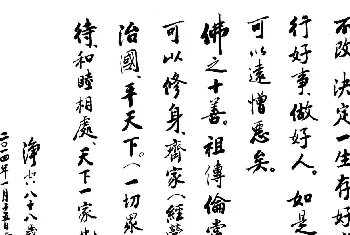 不改、決定一生存好
行好事、做好人。如是
可以遠憎惡矣。
佛之十善。祖傳倫常
可以修身、齊家（經營
治國、平天下。（一切眾
待、和睦相處、天下一家
淨空八十八歲
二〇一四年一月十五日